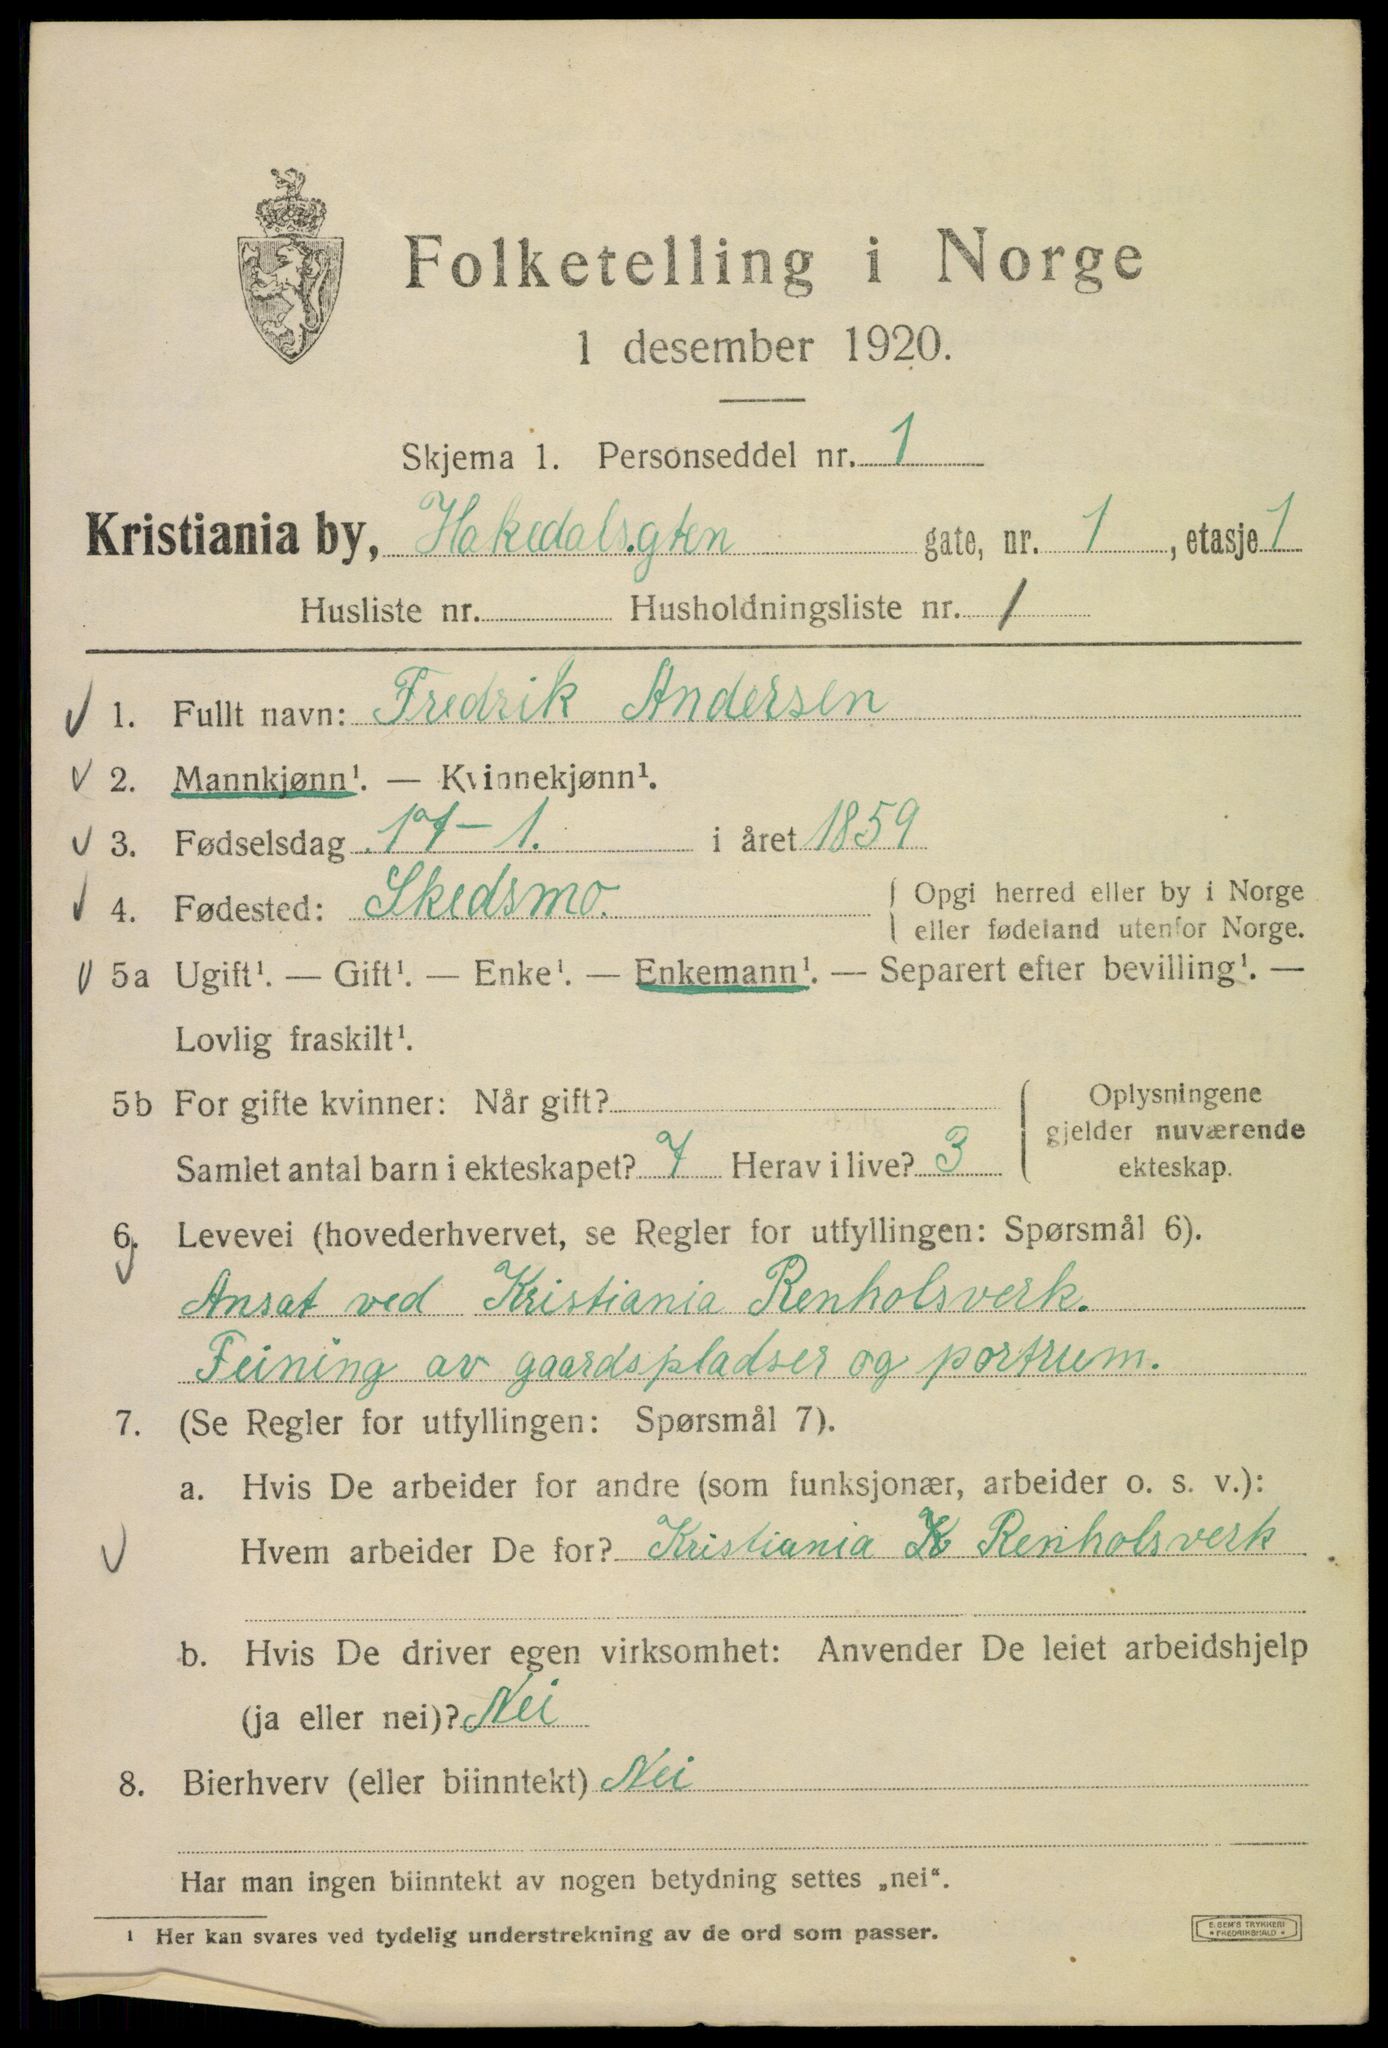 Folketelling i Norge
1 desember 1920.
Skjema 1. Personseddel nr. 1
Kristiania by, Hakedalsgten gate, nr. 1, etasje 1
Husliste nr. Husholdningsliste nr. 1
1. Fullt navn: Fredrik Andersen
2. Mannkjønn¹. — Kvinnekjønn¹.
3. Fødselsdag 17-1. i året 1859
4. Fødested: Skedsmo. { Opgi herred eller by i Norge
eller fødeland utenfor Norge.
5a Ugift¹. — Gift¹. — Enke¹. — Enkemann¹. — Separert efter bevilling¹. —
Lovlig fraskilt¹.
5b For gifte kvinner: Når gift? { Oplysningene
gjelder nuværende
Samlet antal barn i ekteskapet? 7 Herav i live? 3 ekteskap.
6. Levevei (hovederhvervet, se Regler for utfyllingen: Spørsmål 6).
Ansat ved Kristiania Renholsverk.
Feining av gaardspladser og portrum.
7. (Se Regler for utfyllingen: Spørsmål 7).
a. Hvis De arbeider for andre (som funksjonær, arbeider o. s. v.):
Hvem arbeider De for? Kristiania Renholsverk
b. Hvis De driver egen virksomhet: Anvender De leiet arbeidshjelp
(ja eller nei)? Nei
8. Bierhverv (eller biinntekt) Nei
Har man ingen biinntekt av nogen betydning settes „nei“.
¹ Her kan svares ved tydelig understrekning av de ord som passer.
E. SEM'S TRYKKERI
* FREDRIKSHALD *